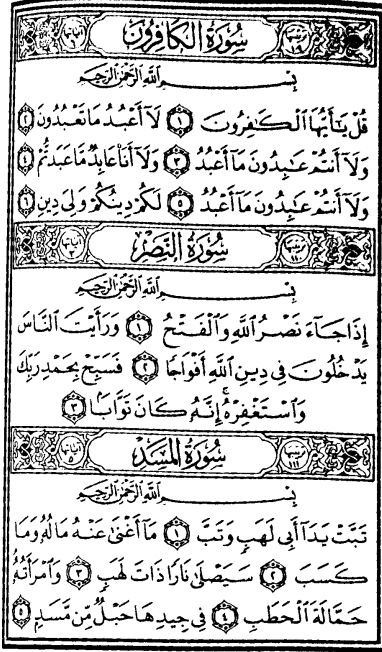 سُورَةُ الكَافِرُونَ
بِسْمِ اللَّهِ الرَّحْمَٰنِ الرَّحِيمِ
قُلْ يَٰٓأَيُّهَا ٱلْكَٰفِرُونَ ١ لَآ أَعْبُدُ مَا تَعْبُدُونَ ٢
وَلَآ أَنتُمْ عَٰبِدُونَ مَآ أَعْبُدُ ٣ وَلَآ أَنَا۠ عَابِدٌ مَّا عَبَدتُّمْ ٤
وَلَآ أَنتُمْ عَٰبِدُونَ مَآ أَعْبُدُ ٥ لَكُمْ دِينُكُمْ وَلِيَ دِينِ ٦
سُورَةُ النَّصْرِ
بِسْمِ اللَّهِ الرَّحْمَٰنِ الرَّحِيمِ
إِذَا جَآءَ نَصْرُ ٱللَّهِ وَٱلْفَتْحُ ١ وَرَأَيْتَ ٱلنَّاسَ
يَدْخُلُونَ فِي دِينِ ٱللَّهِ أَفْوَاجًا ٢ فَسَبِّحْ بِحَمْدِ رَبِّكَ
وَٱسْتَغْفِرْهُ ۚ إِنَّهُۥ كَانَ تَوَّابًۢا ٣
سُورَةُ المَسَدِ
بِسْمِ اللَّهِ الرَّحْمَٰنِ الرَّحِيمِ
تَبَّتْ يَدَآ أَبِي لَهَبٍ وَتَبَّ ١ مَآ أَغْنَىٰ عَنْهُ مَالُهُۥ وَمَا
كَسَبَ ٢ سَيَصْلَىٰ نَارًا ذَاتَ لَهَبٍ ٣ وَٱمْرَأَتُهُۥ
حَمَّالَةَ ٱلْحَطَبِ ٤ فِي جِيدِهَا حَبْلٌ مِّن مَّسَدٍۭ ٥